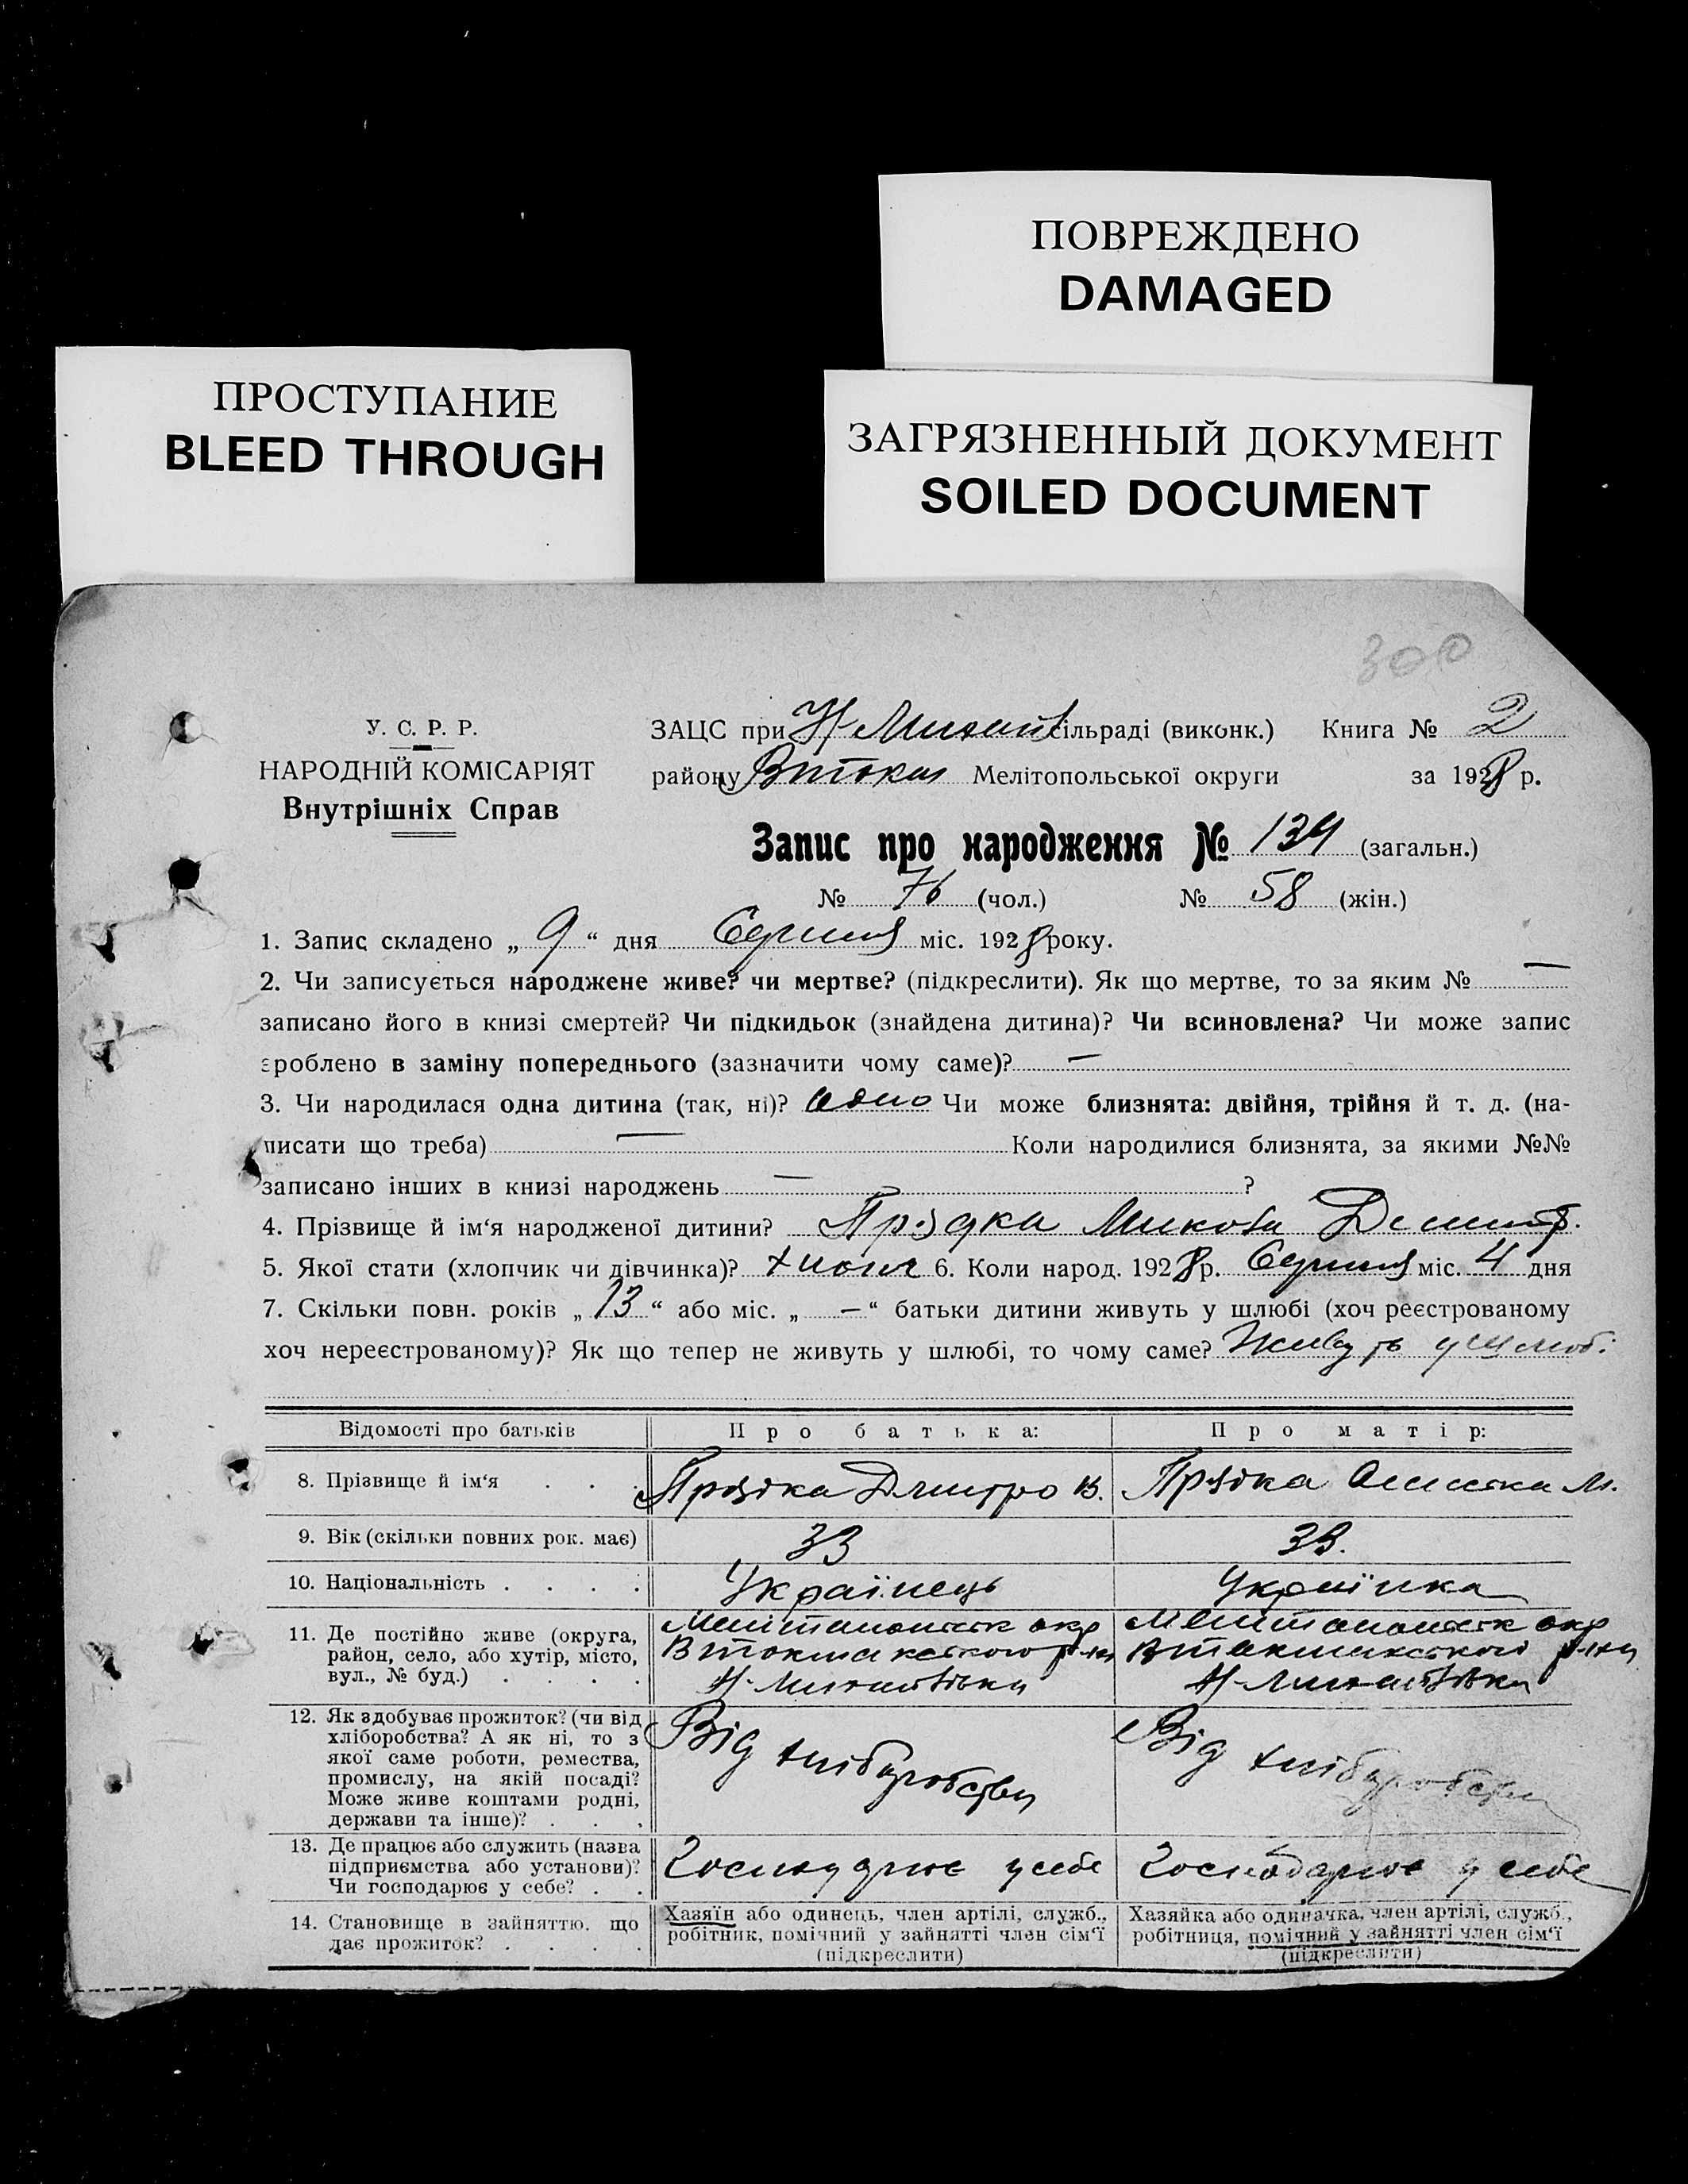 ПОВРЕЖДЕНО
DAMAGED
ПРОСТУПАНИЕ
BLEED THROUGH
ЗАГРЯЗНЕННЫЙ ДОКУМЕНТ
SOILED DOCUMENT
300
У. С. Р. Р.
НАРОДНІЙ КОМІСАРІЯТ
Внутрішніх Справ
ЗАЦС при Н-Михай сільраді (виконк.) Книга № 2
району Втокм Мелітопольської округи за 1928 р.
Запис про народження № 134 (загальн.)
№ 76 (чол.) № 58 (жін.)
1. Запис складено „ 9 “ дня Серпня міс. 1928 року.
2. Чи записується народжене живе? чи мертве? (підкреслити). Як що мертве, то за яким № —
записано його в книзі смертей? Чи підкидьок (знайдена дитина)? Чи всиновлена? Чи може запис
зроблено в заміну попереднього (зазначити чому саме)? —
3. Чи народилася одна дитина (так, ні)? одно Чи може близнята: двійня, трійня й т. д. (на-
писати що треба) — Коли народилися близнята, за якими №№
записано інших в книзі народжень — ?
4. Прізвище й ім‘я народженої дитини? Прядка Микола Дмитр.
5. Якої стати (хлопчик чи дівчинка)? 6. Коли народ. 1928 р. Серпня міс. 4 дня
7. Скільки повн. років „ 13 “ або міс. „ — “ батьки дитини живуть у шлюбі (хоч реєстрованому
хоч нереєстрованому)? Як що тепер не живуть у шлюбі, то чому саме? Живуть у шлюбі
Відомості про батьків Про батька: Про матір:
8. Прізвище й ім‘я . . . Прядка Дмитро В. Прядка М.
9. Вік (скільки повних рок. має) 33 33.
10. Національність . . . . Українець Українка
11. Де постійно живе (округа,
район, село, або хутір, місто,
вул., № буд.) . . . .
Мелітопольск окр
Втокмакского р-ну
Н-Михайлівка
Мелітопольск окр
Втокмакского р-ну
Н-Михайлівка
12. Як здобуває прожиток? (чи від
хліборобства? А як ні, то з
якої саме роботи, ремества,
промислу, на якій посаді?
Може живе коштами родні,
держави та інше)? . . .
Від хліборобства
Від хліборобства
13. Де працює або служить (назва
підприємства або установи)?
Чи господарює у себе? . .
Господарює у себе
Господарює у себе
14. Становище в зайняттю, що
дає прожиток? . . . .
Хазяїн або одинець, член артілі, служб.,
робітник, помічний у зайнятті член сім‘ї
(підкреслити)
Хазяйка або одиначка, член артілі, служб.,
робітниця, помічний у зайнятті член сім‘ї
(підкреслити)